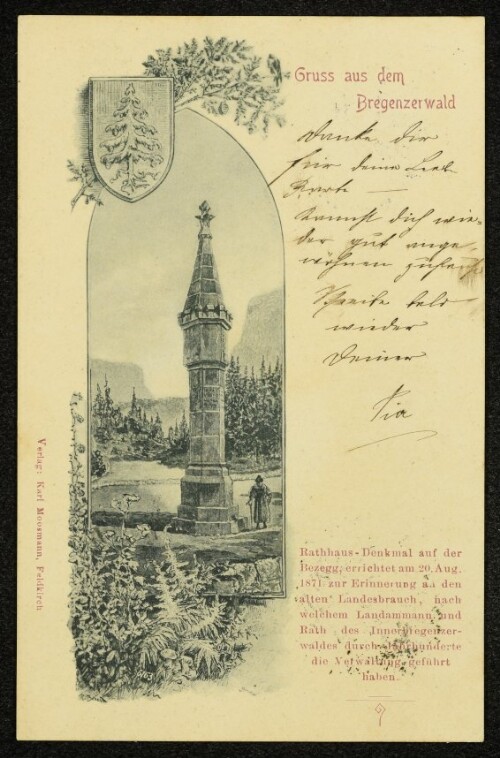 Gruss aus dem
Bregenzerwald
Danke dir
für deine
Karte —
kannst dich wie-
der gut ange-
wöhnen
Schreibe bald
wieder
Deiner
Pia
Rathhaus-Denkmal auf der
Bezegg, errichtet am 20. Aug.
1871 zur Erinnerung an den
alten Landesbrauch, nach
welchem Landammann und
Rath des Innerbregenzer-
waldes durch Jahrhunderte
die Verwaltung geführt
haben.
Verlag: Karl Moosmann, Feldkirch